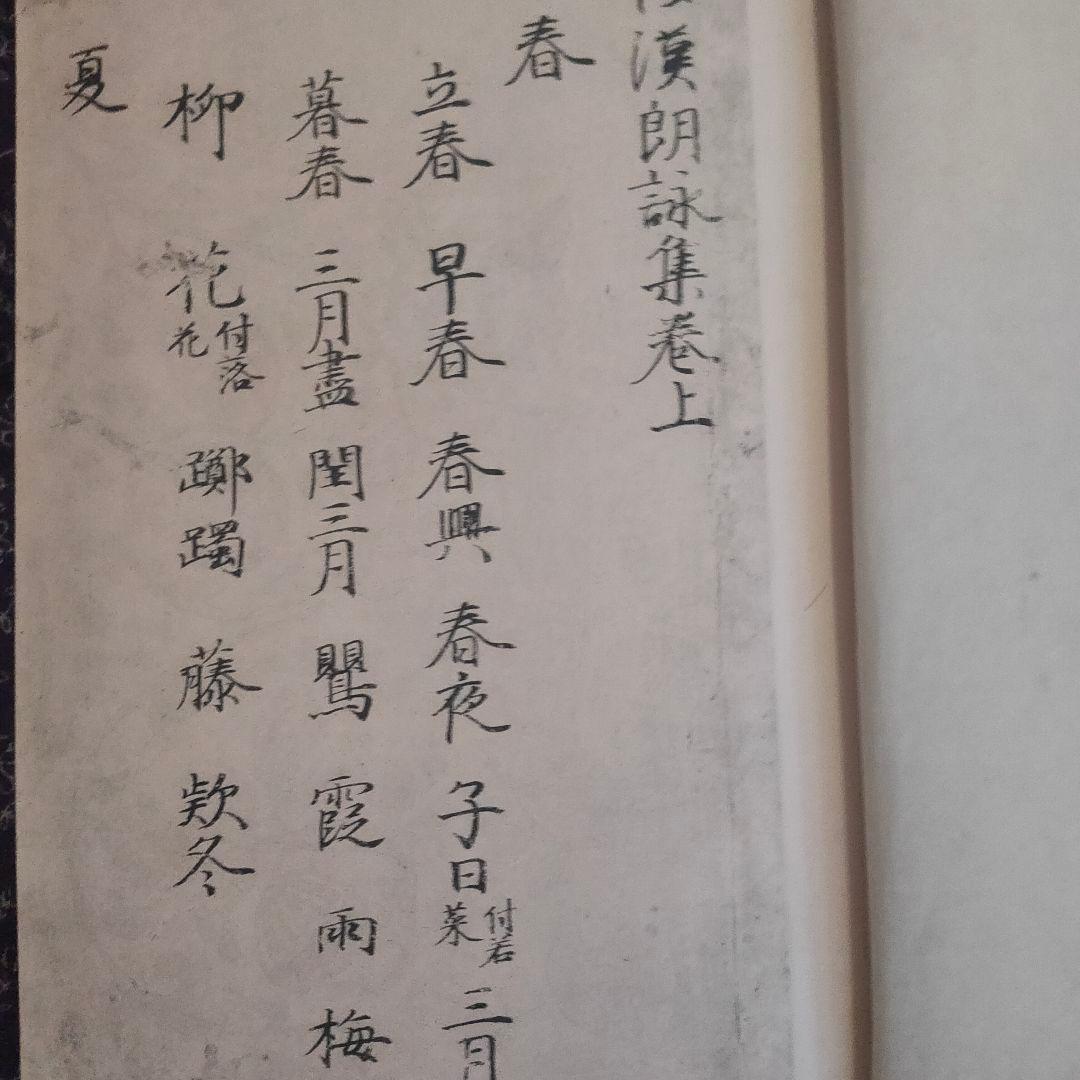 漢朗詠集巻上
春
立春 早春 春興 春夜 子日付若菜 三月
暮春 三月盡 閏三月 鸎 霞 雨 梅
柳 花付落花 躑躅 藤 欵冬
夏